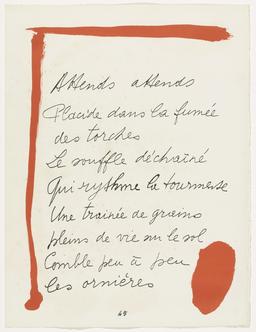 Attends attends
Placide dans la fumée
des torches
Le souffle déchaîné
Qui rythme la tourmente
Une traînée de grains
pleins de vie sur le sol
Comble peu à peu
les ornières
65